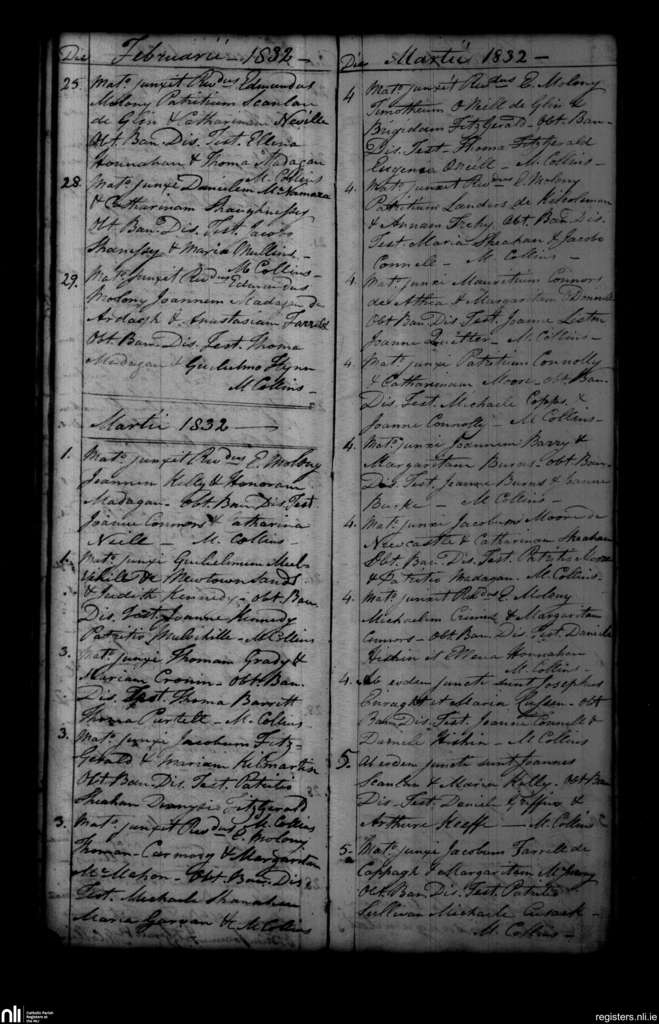 Die Februarii - 1832 -
25. Mato. junxit Revdus Edmundus
Molony Patritium Scanlan
de Glin & Catharinam Neville
Obt. Ban. Dis. Test. Ellena
Hounahan & Thoma Madagan
M. Collins
28. Mato. junxi Danielem McNamara
& Catharinam Shaughnessy
Obt Ban. Dis. Test. Jacobo
Shaughnessy & Maria Mullins. -
M Collins -
29. Mato. junxit Revdus Edmundus
Molony Joannem Madagan de
Ardagh & Anastasiam Farrell
Obt. Ban. Dis. Test. Thoma
Madagan & Gulielmo Flynn
M Collins -
Martii 1832 -
1. Mato. junxit Revdus E. Molony
Joannem Kelly & Honoram
Madagan - Obt. Ban. Dis. Test
Joanne Connors & Catharina
Neille - M. Collins -
1. Mato. junxi Gulielmum
de Newtownsands
& Judith Kennedy - Obt. Ban
Dis. Test. Joanne Kennedy
Patritio Mulvihille - M Collins
3. Mato. junxi Thomam Grady &
Mariam Cronin - Obt Ban.
Dis. Test Thoma Barritt
Thoma Purtell - M. Collins -
3. Mato. junxi Jacobum Fitz-
Gerald & Mariam Kilmartin
Obt. Ban. Dis. Test. Patritio
Sheahan FitzGerald
M. Collins
3. Mato. junxit Revdus E. Molony
Thomam Carmody & Margaritam
McMahon - Obt. Ban. Dis
Test. Michaele Shanahan
Maria Garvan & M Collins
Die Martii 1832 -
4 Mato. junxit Revdus E. Molony
Timotheum O Neill de Glin &
Brigidam FitzGerald - Obt. Ban -
Dis. Test Thoma Fitzgerald
Eugenia O'Neill - M. Collins -
4. Mato. junxit Revdus E. Molony
Patritium Landers de Kilcoleman
& Annam Fechy Obt. Ban. Dis.
Test Maria Sheahan & Jacobo
Connell - M Collins -
4. Mato. junxi Mauritium Connors
de Athea & Margaritam
Obt Ban Dis Test Joanne Liston
Joanne - M. Collins -
4. Mato. junxi Patritium Connolly
& Catharinam Moore - obt Ban.
Dis. Test. Michaele Copps. &
Joanne Connolly - M Collins -
4. Mato. junxi Joannem Barry &
Margaritam Burns - Obt Ban -
Dis. Test. Joanne Burns & Joanne
Burke - M Collins -
4. Mato. junxi Jacobum Moore de
Newcastle & Catharinam Sheahan
Obt. Ban. Dis. Test. Patritio Moore
& Patritio Madagan. M. Collins -
4. Mato. junxit Revdus E Molony
Michaelem & Margaritam
Connors - Obt Ban Dis Test Daniele
Histin et Ellena Hounahan
M. Collins -
4. Ab eodem juncti sunt Josephus
Enraght et Maria - Obt
Ban Dis. Test. Joanne Connell &
Daniele Histin - M Collins
5. Ab eodem juncti sunt Joannes
Scanlan & Maria Kelly. Obt Ban
Dis. Test. Daniel Griffin &
Arthure Keeffe - M. Collins
5. Mato. junxi Jacobum Farrell de
Cappagh & Margaritam
Obt. Ban Dis. Test. Patritio
Sullivan Michaele Cusack -
M. Collins -
nli
Catholic Parish
Registers at
the NLI
registers.nli.ie